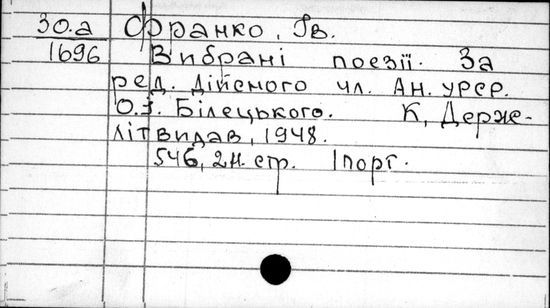 30.а Франко, Ів.
1696 Вибрані поезії. За
ред. дійсного чл. Ан. УРСР.
О.І. Білецького. К, Держ-
літвидав, 1948.
546, 2н. стр. 1 порт.